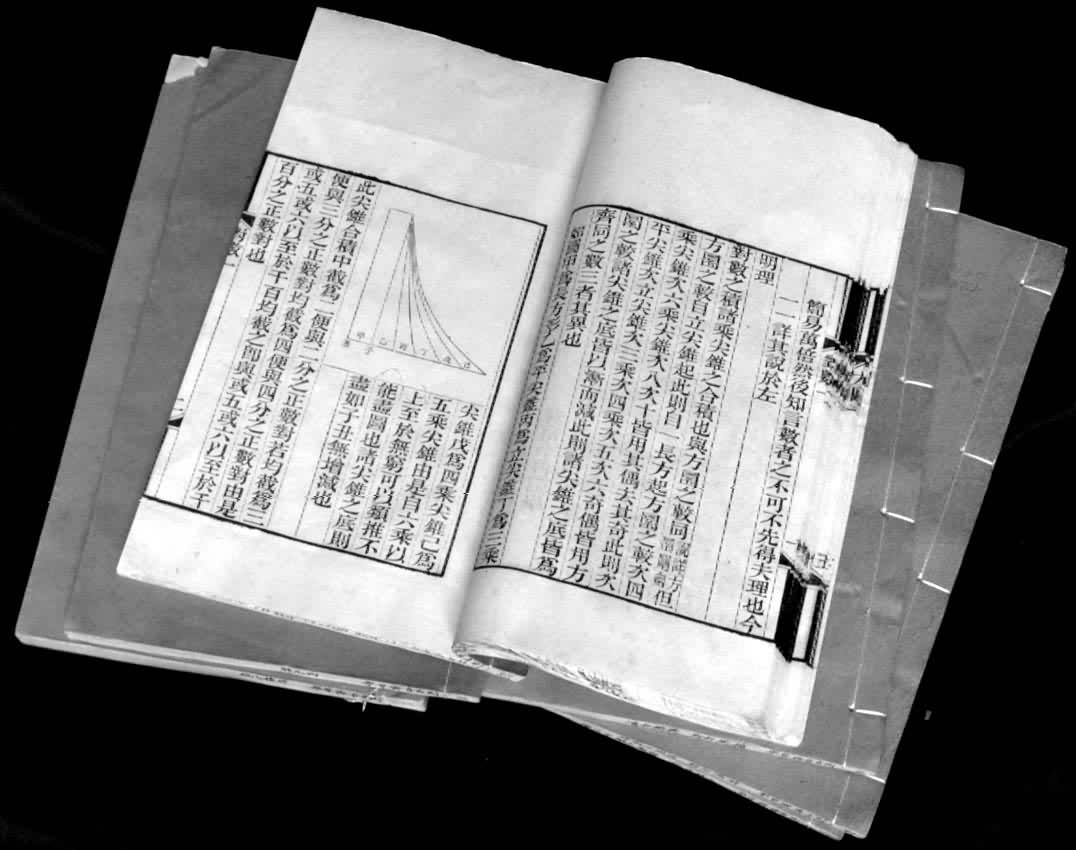 簡易萬倍然後知言數者之不可不先得夫理也今
一一詳其說於左
明理
對數之積諸乘尖錐之合積也與方圜之數同說詳方圜闡幽但
方圜之數自立尖錐起此則自一長方起方圜之數次四
乘尖錐次六乘尖錐次八次十皆用其偶去其奇此則次
平尖錐次立尖錐次三乘次四乘次五次六奇偶皆用方
圜之數諸尖錐之底皆以漸而減此則諸尖錐之底皆爲
齊同之數二者其異也
如圖甲爲長方乙爲平尖錐丙爲立尖錐丁爲三乘
甲乙丙丁戊己
丑子
尖錐戊爲四乘尖錐己爲
五乘尖錐由是自六乘以
上至於無窮可以類推不
能盡圖也諸尖錐之底則
盡如子丑無增減也
此尖錐合積中截爲二便與二分之正數對若均截爲三
便與三分之正數對均截爲四便與四分之正數對由是
或五或六以至於千百均截之即與或五或六以至於千
百分之正數對也